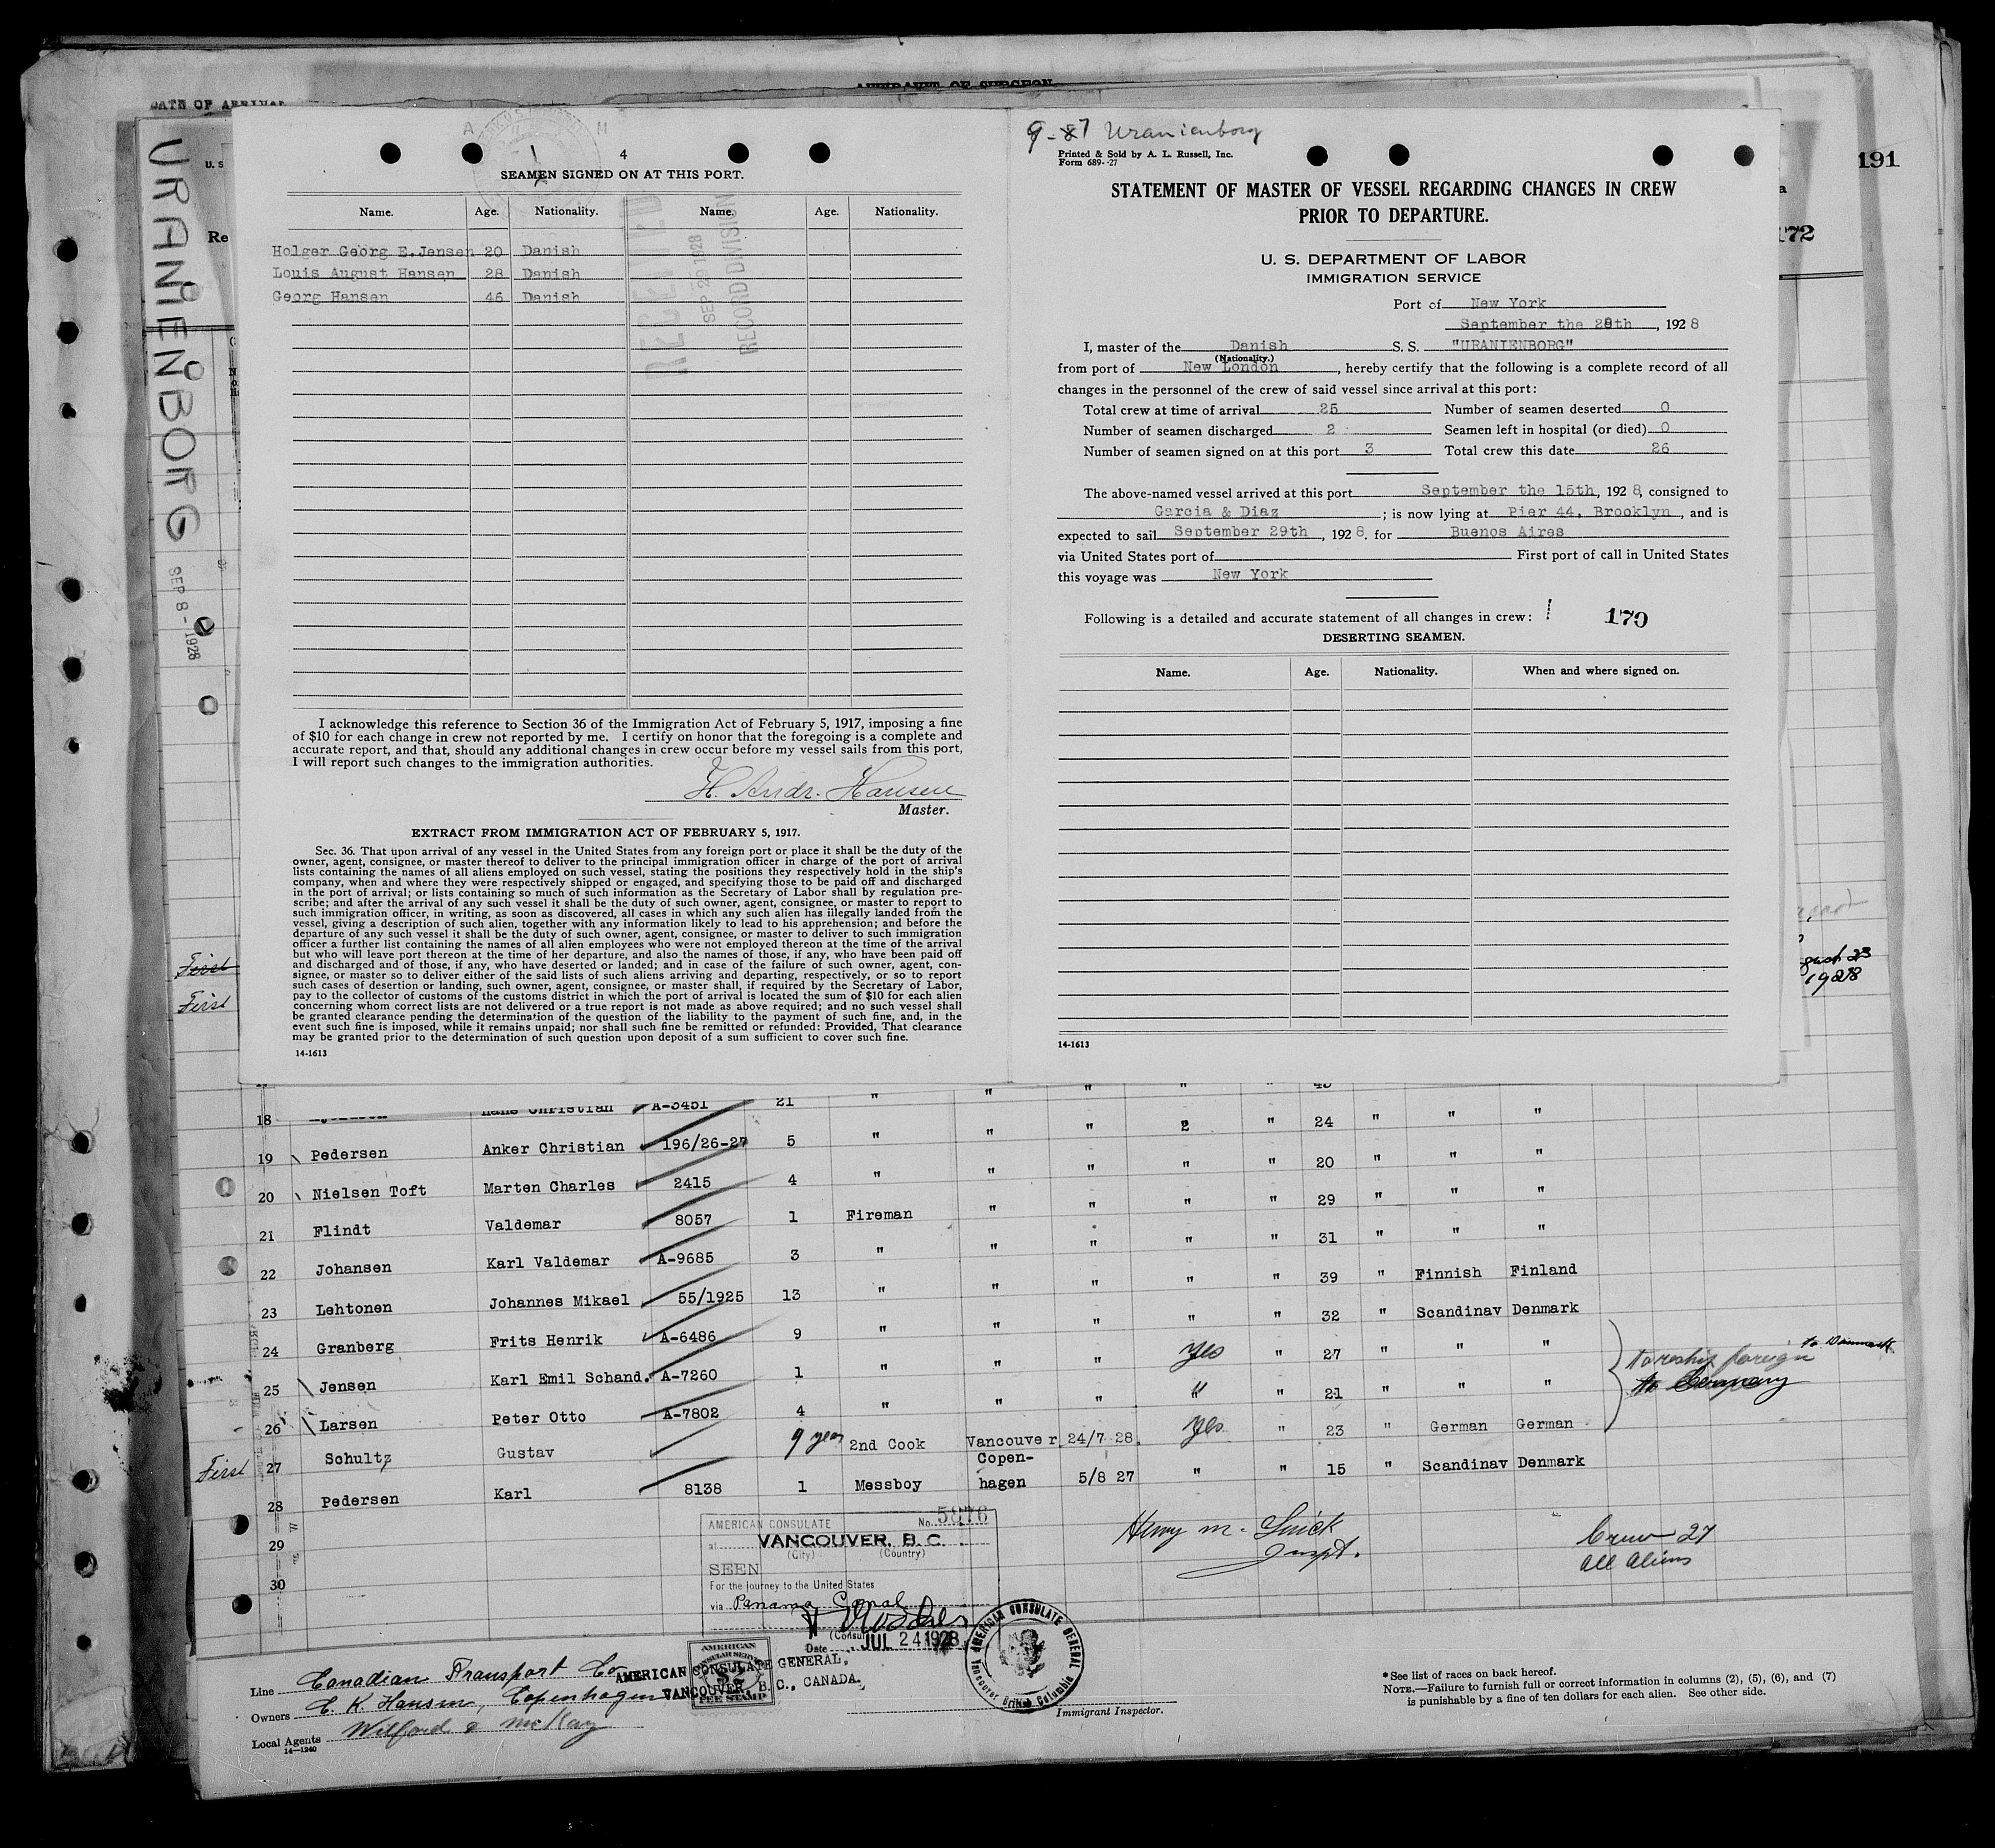 AFFIDAVIT OF SURGEON
DATE OF ARRIVAL
URANIENBORG
SEP 8 - 1928
U. S
Re
191
172
4
SEAMEN SIGNED ON AT THIS PORT.
Name. Age. Nationality. Name. Age. Nationality.
Holger Georg E.Jensen 20 Danish
Louis August Hansen 28 Danish
Georg Hansen 46 Danish
RECEIVED
SEP 29 1928
RECORD DIVISION
I acknowledge this reference to Section 36 of the Immigration Act of February 5, 1917, imposing a fine
of $10 for each change in crew not reported by me. I certify on honor that the foregoing is a complete and
accurate report, and that, should any additional changes in crew occur before my vessel sails from this port,
I will report such changes to the immigration authorities.
H. Andr. Hansen
Master.
EXTRACT FROM IMMIGRATION ACT OF FEBRUARY 5, 1917.
Sec. 36. That upon arrival of any vessel in the United States from any foreign port or place it shall be the duty of the
owner, agent, consignee, or master thereof to deliver to the principal immigration officer in charge of the port of arrival
lists containing the names of all aliens employed on such vessel, stating the positions they respectively hold in the ship's
company, when and where they were respectively shipped or engaged, and specifying those to be paid off and discharged
in the port of arrival; or lists containing so much of such information as the Secretary of Labor shall by regulation pre-
scribe; and after the arrival of any such vessel it shall be the duty of such owner, agent, consignee, or master to report to
such immigration officer, in writing, as soon as discovered, all cases in which any such alien has illegally landed from the
vessel, giving a description of such alien, together with any information likely to lead to his apprehension; and before the
departure of any such vessel it shall be the duty of such owner, agent, consignee, or master to deliver to such immigration
officer a further list containing the names of all alien employees who were not employed thereon at the time of the arrival
but who will leave port thereon at the time of her departure, and also the names of those, if any, who have been paid off
and discharged and of those, if any, who have deserted or landed; and in case of the failure of such owner, agent, con-
signee, or master so to deliver either of the said lists of such aliens arriving and departing, respectively, or so to report
such cases of desertion or landing, such owner, agent, consignee, or master shall, if required by the Secretary of Labor,
pay to the collector of customs of the customs district in which the port of arrival is located the sum of $10 for each alien
concerning whom correct lists are not delivered or a true report is not made as above required; and no such vessel shall
be granted clearance pending the determination of the question of the liability to the payment of such fine, and, in the
event such fine is imposed, while it remains unpaid; nor shall such fine be remitted or refunded: Provided, That clearance
may be granted prior to the determination of such question upon deposit of a sum sufficient to cover such fine.
14-1613
Uranienborg
Printed & Sold by A. L. Russell, Inc.
Form 689--27
STATEMENT OF MASTER OF VESSEL REGARDING CHANGES IN CREW
PRIOR TO DEPARTURE.
U. S. DEPARTMENT OF LABOR
IMMIGRATION SERVICE
Port of New York
September the 28th, 1928
I, master of the Danish S. S. "URANIENBORG"
(Nationality.)
from port of New London, hereby certify that the following is a complete record of all
changes in the personnel of the crew of said vessel since arrival at this port:
Total crew at time of arrival 25 Number of seamen deserted 0
Number of seamen discharged 2 Seamen left in hospital (or died) 0
Number of seamen signed on at this port 3 Total crew this date 26
The above-named vessel arrived at this port September the 15th, 1928, consigned to
Garcia & Diaz; is now lying at Pier 44, Brooklyn, and is
expected to sail September 29th, 1928. for Buenos Aires
via United States port of First port of call in United States
this voyage was New York
Following is a detailed and accurate statement of all changes in crew: 170
DESERTING SEAMEN.
Name. Age. Nationality. When and where signed on.
14-1613
First
First
1928
18 Hans Christian A-3451 21 " " " " "
19 Pedersen Anker Christian 196/26-27 5 " " " 2 " 24 " " "
20 Nielsen Toft Marten Charles 2415 4 " " " " " 20 " " "
21 Flindt Valdemar 8057 1 Fireman " " " " 29 " " "
22 Johansen Karl Valdemar A-9685 3 " " " " " 31 " " "
23 Lehtonen Johannes Mikael 55/1925 13 " " " " " 39 " Finnish Finland
24 Granberg Frits Henrik A-6486 9 " " " " " 32 " Scandinav Denmark
25 Jensen Karl Emil Schand. A-7260 1 " " " Yes " 27 " " "
26 Larsen Peter Otto A-7802 4 " " " " " 21 " " "
First 27 Schultz Gustav 9 year 2nd Cook Vancouver 24/7 28. Yes " 23 " German German
28 Pedersen Karl 8138 1 Messboy Copen-
hagen 5/8 27 " " 15 " Scandinav Denmark
29
30
to reship foreign to Denmark
to Germany
Crew 27
all aliens
AMERICAN CONSULATE No. 5876
at VANCOUVER, B. C.
(City) (Country)
SEEN
For the journey to the United States
via Panama Canal
(Consul
Date JUL 24 1928
AMERICAN CONSULATE GENERAL,
VANCOUVER, B. C., CANADA.
AMERICAN
CONSULAR SERVICE
$2
FEE STAMP
AMERICAN CONSULATE GENERAL
Vancouver British Columbia
Line Canadian Transport Co
Owners C. K. Hansen, Copenhagen
Local Agents Wilford & McKay
14-1240
Immigrant Inspector.
*See list of races on back hereof.
NOTE.—Failure to furnish full or correct information in columns (2), (5), (6), and (7)
is punishable by a fine of ten dollars for each alien. See other side.